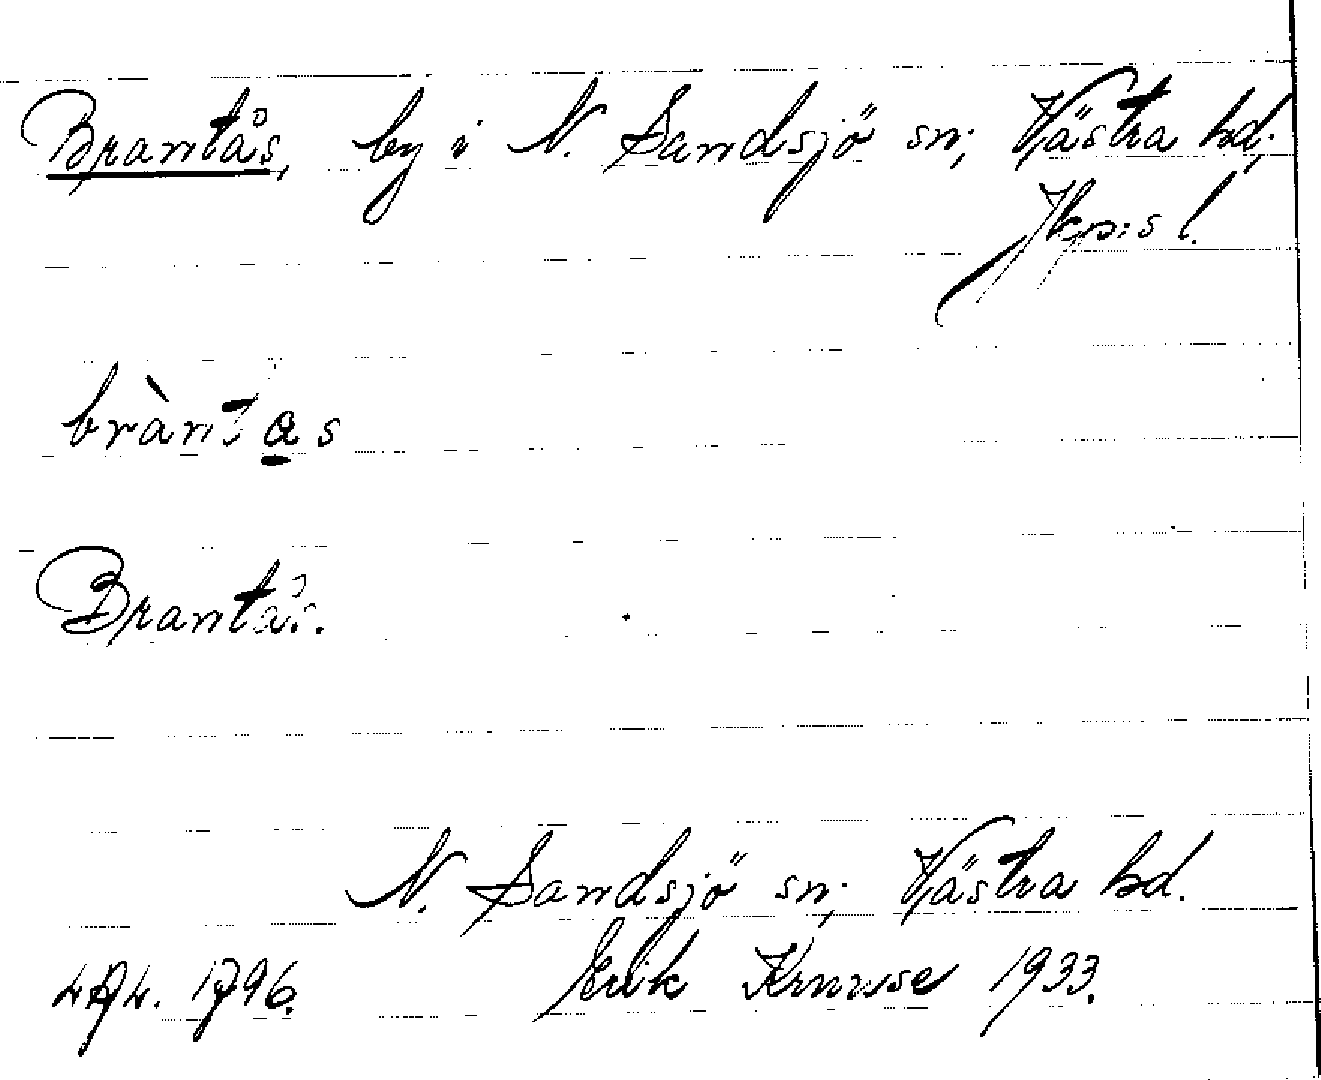 Brantås, by i N. Sandsjö sn; Västra hd;
Jkp:s l.
bràntas
Brantås.
N. Sandsjö sn; Västra hd.
1796. Erik Kruuse 1933.